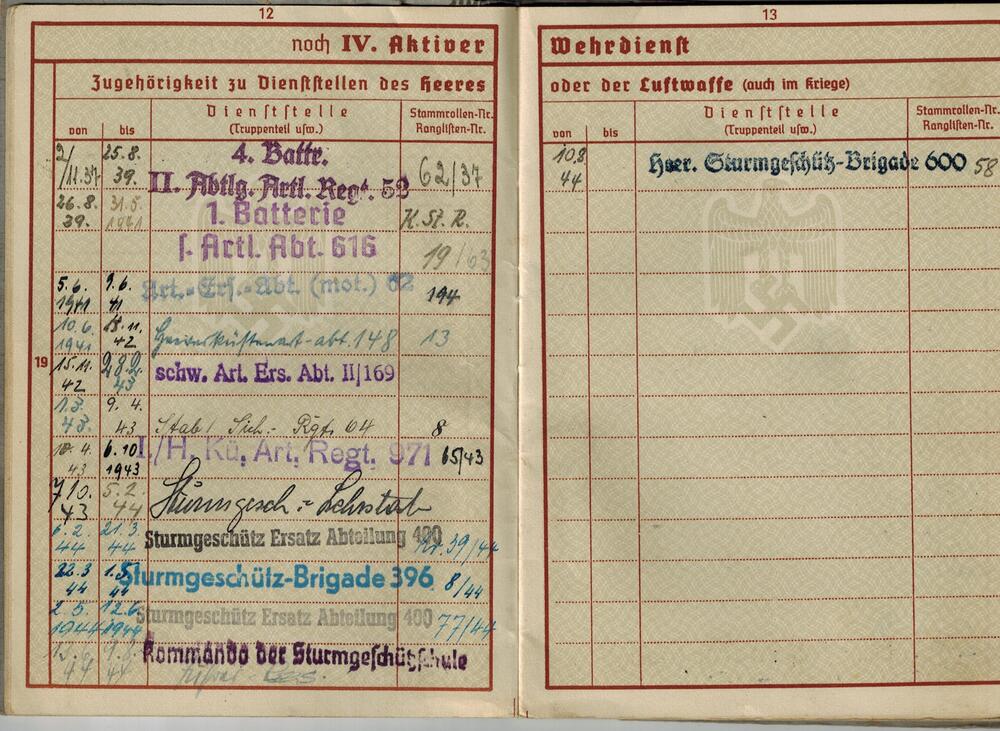 12
noch IV. Aktiver
Zugehörigkeit zu Dienststellen des Heeres
von bis Dienststelle (Truppenteil usw.) Stammrollen-Nr. Ranglisten-Nr.
2/11.37 25.8.39. 4. Battr. II. Abtlg. Artl. Regt. 52 62/37
26.8.39. 31.5.1941 1. Batterie K. St. R.
s. Artl. Abt. 616 19/63
5.6.1941 9.6.41 Art.-Ers.-Abt. (mot.) 62 194
10.6.1941 18.11.42 Heeresküstenart-abt. 148 13
19
15.11.42 28.2.43 schw. Art. Ers. Abt. II/169
1.3.43. 9.4.43 Stab/ Sich.- Rgt. 64 8
10.4.43 6.10.1943 I./H. Kü. Art. Regt. 971 65/43
7.10.43 5.2.44 Sturmgesch.-Lehrstab
6.2.44 21.3.44 Sturmgeschütz Ersatz Abteilung 400 Nr. 39/44
22.3.44 1.5.44 Sturmgeschütz-Brigade 396 8/44
2.5.1944 12.6.1944 Sturmgeschütz Ersatz Abteilung 400 77/44
44 44 Kommando der Sturmgeschützschule
13
Wehrdienst
oder der Luftwaffe (auch im Kriege)
von bis Dienststelle (Truppenteil usw.) Stammrollen-Nr. Ranglisten-Nr.
10.8.44 Heer. Sturmgeschütz-Brigade 600 58